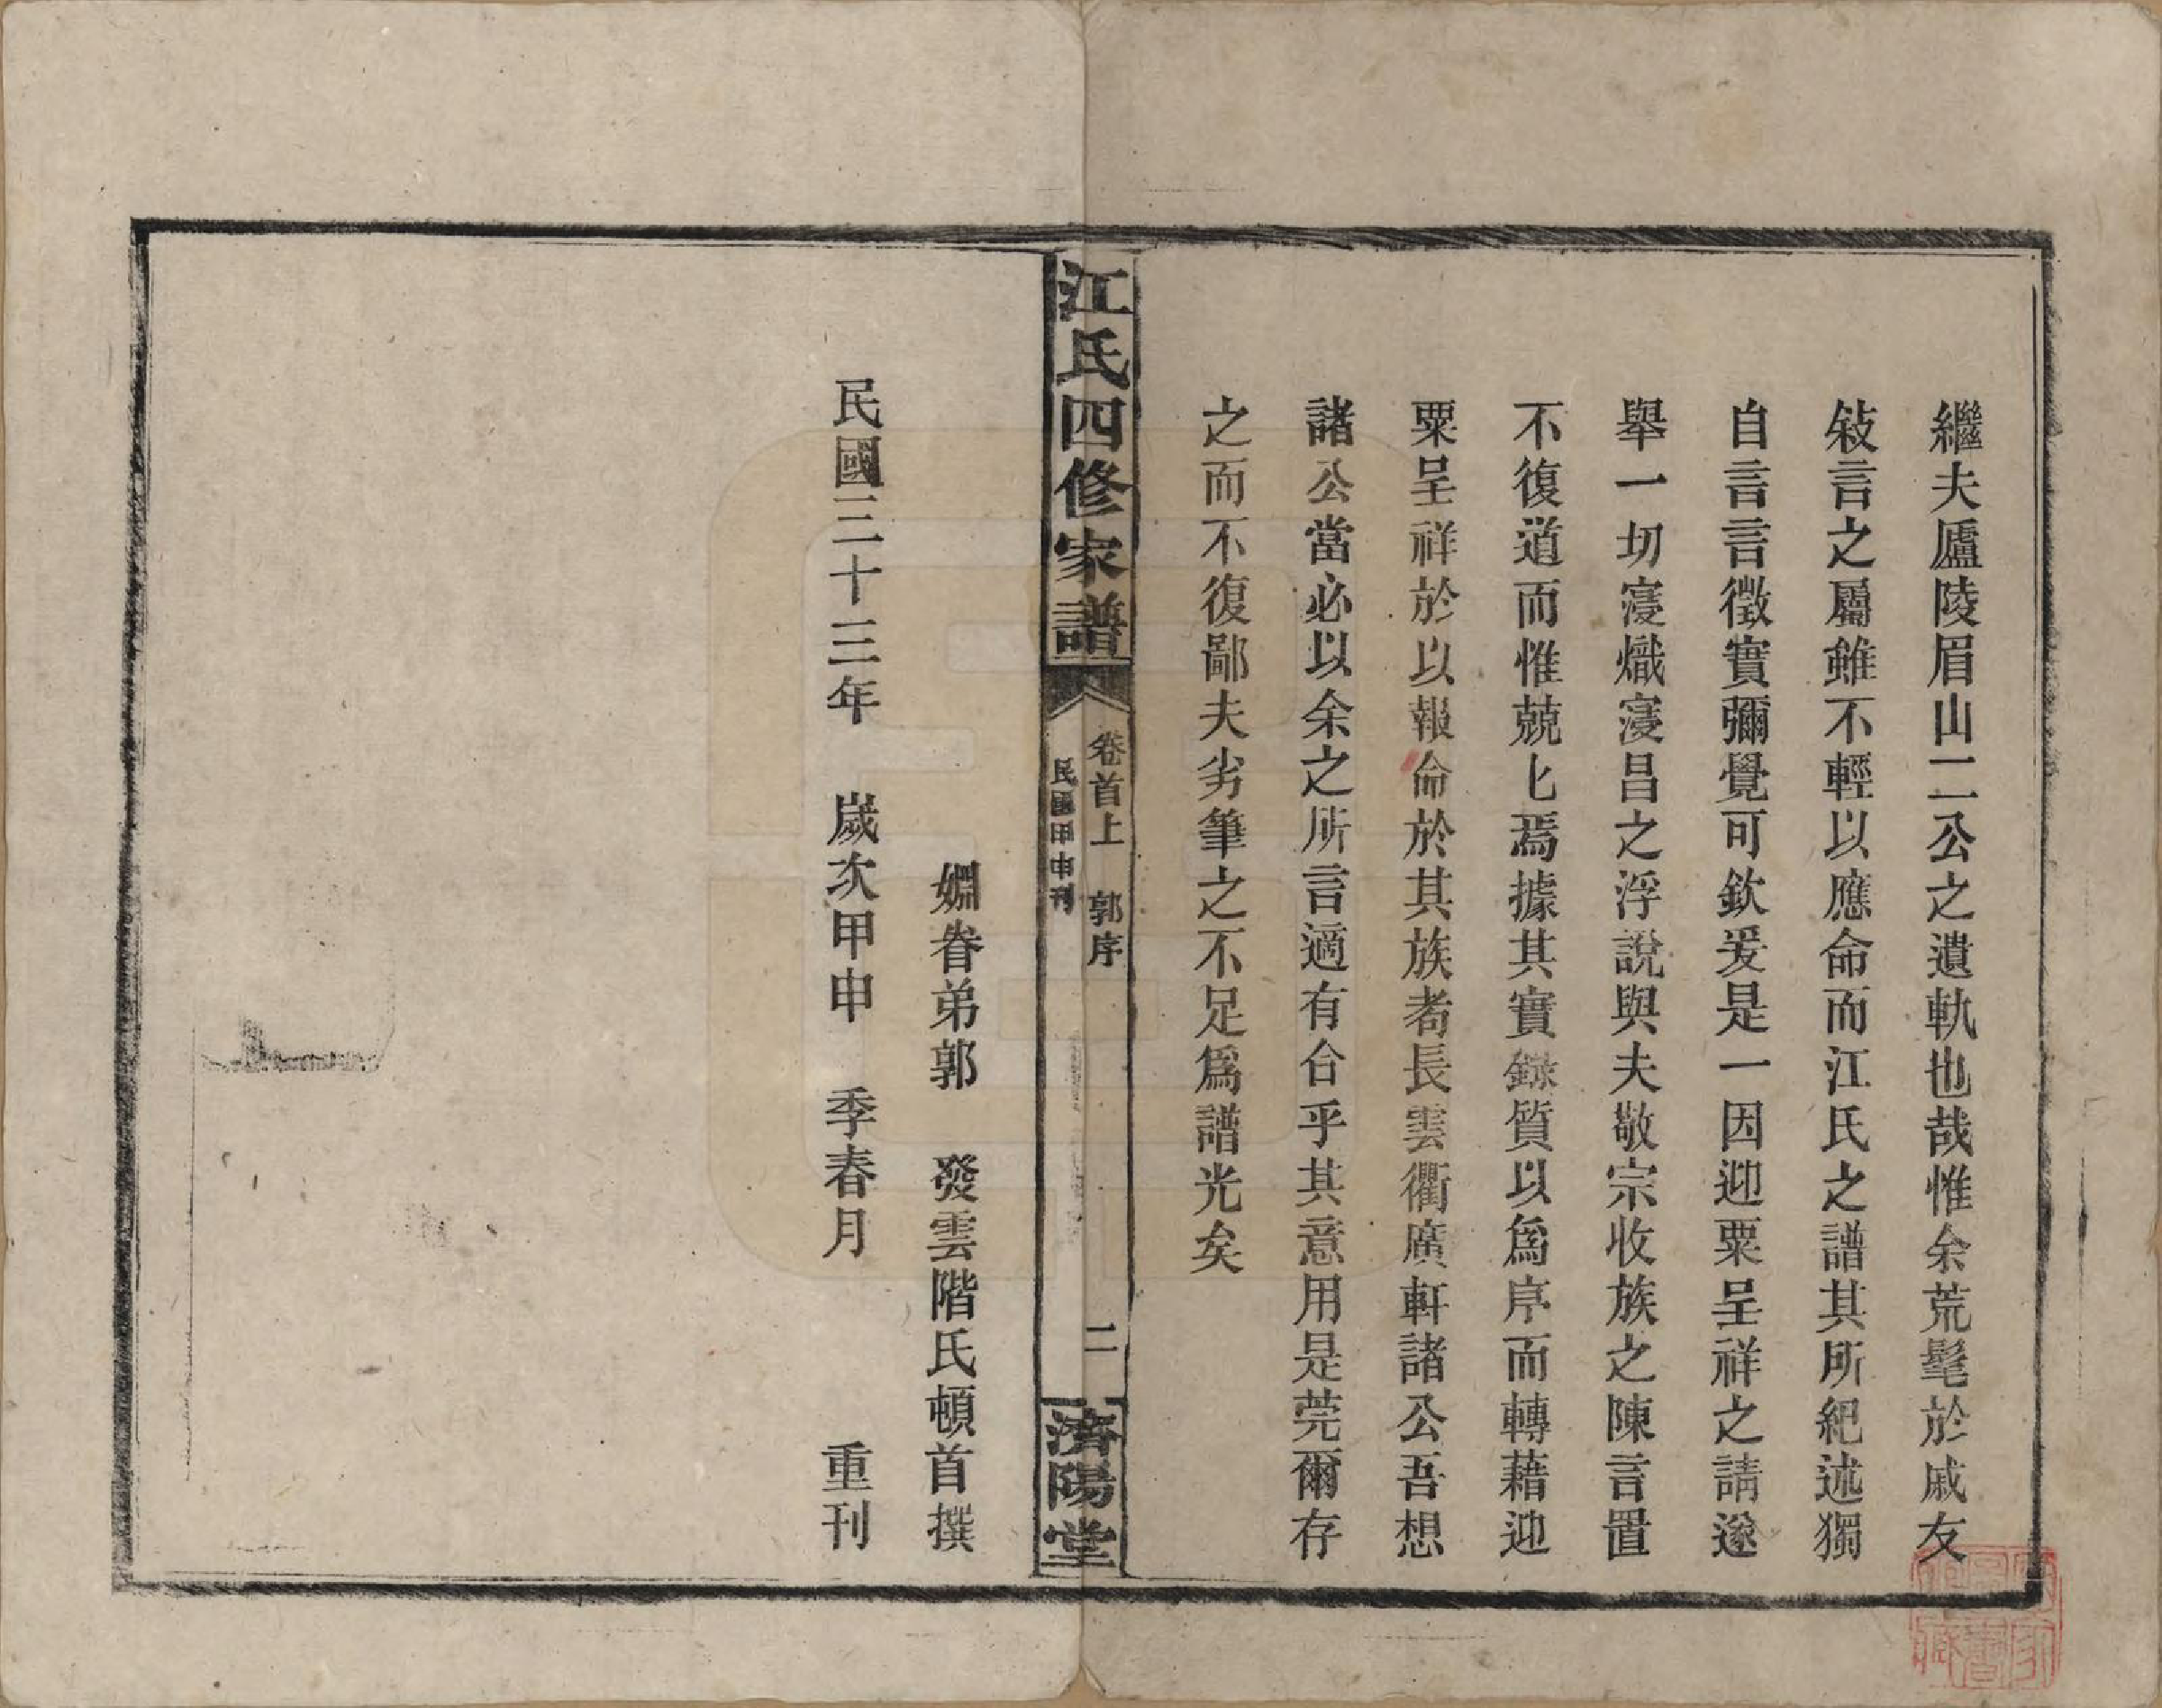 繼夫廬陵眉山二公之遺軌也哉惟余荒髦於戚友
敍言之屬雖不輕以應命而江氏之譜其所紀述獨
自言言徵實彌覺可欽爰是一因迎粟呈祥之請遂
舉一切寖熾寖昌之浮說與夫敬宗收族之陳言置
不復道而惟兢匕焉據其實錄質以爲序而轉藉迎
粟呈祥於以報命於其族耆長雲衢廣軒諸公吾想
諸公當必以余之所言適有合乎其意用是莞爾存
之而不復鄙夫劣筆之不足爲譜光矣
江氏四修家譜
卷首上 郭序 二
民國甲申刊
濟陽堂
婣眷弟郭 發雲階氏頓首撰
民國三十三年 歲次甲申 季春月 重刊